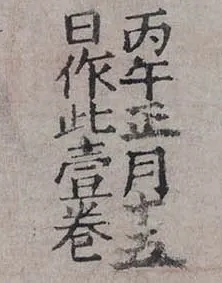 丙午正月十五
日作此壹卷